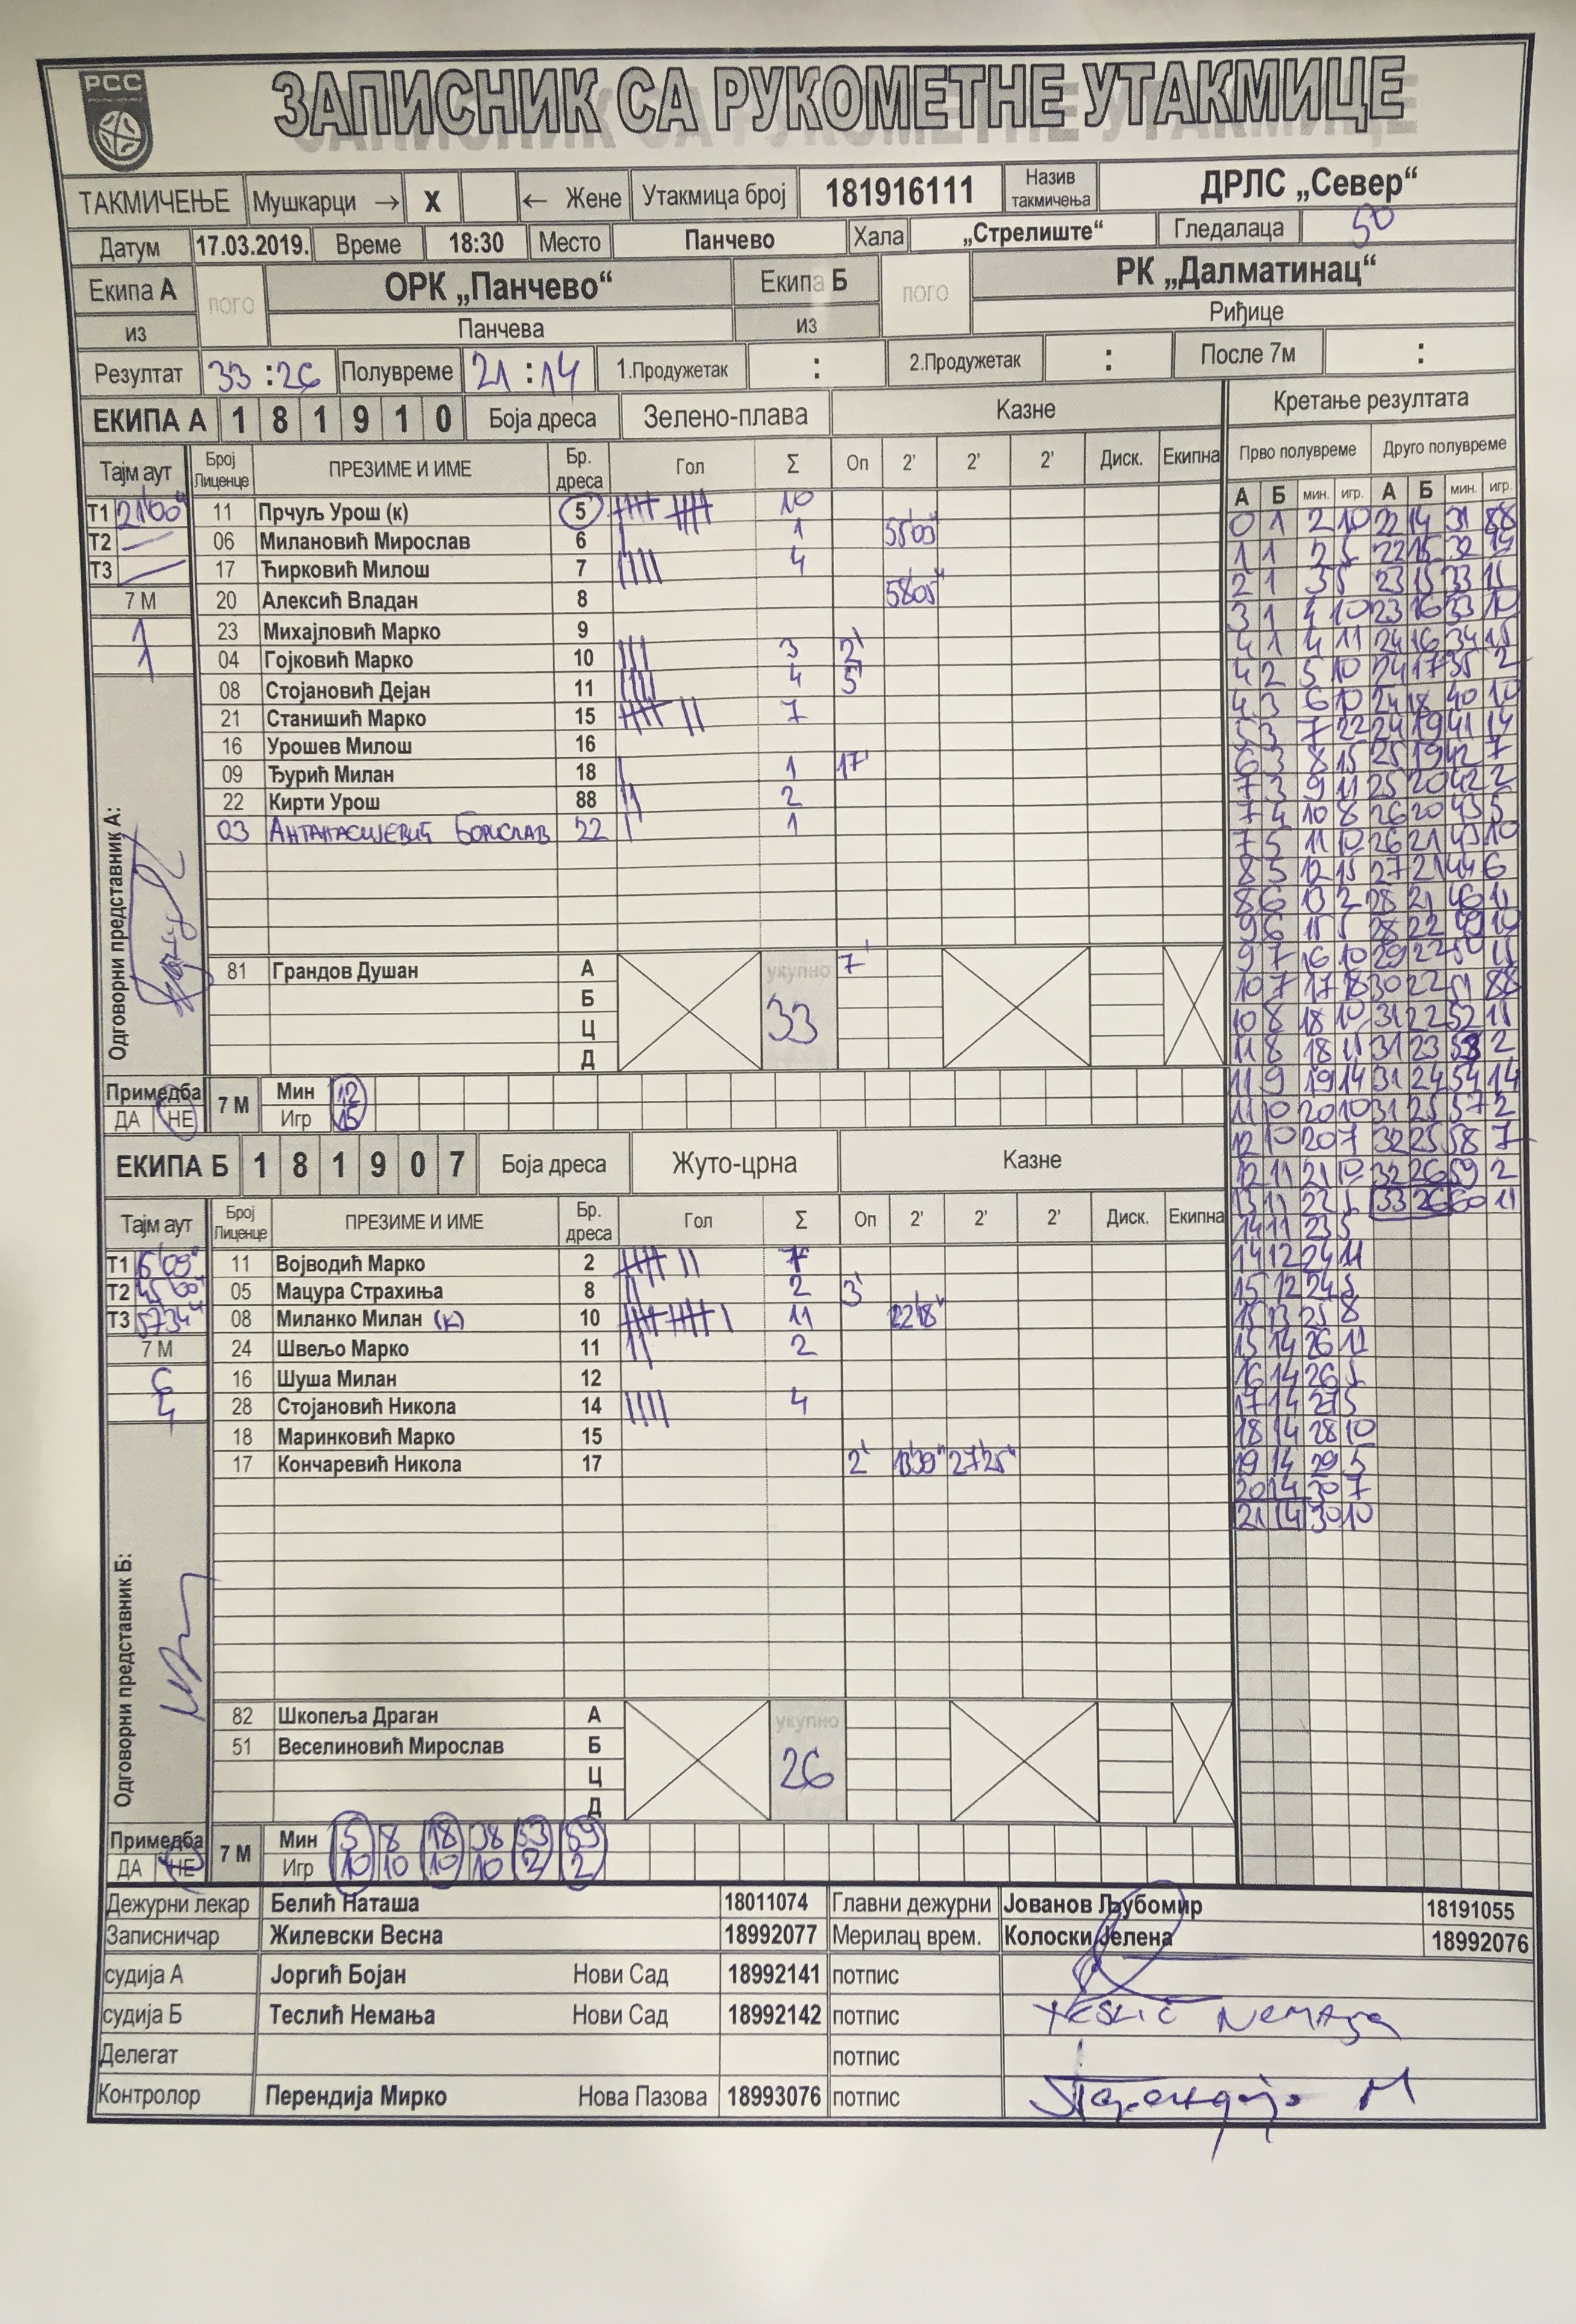 РСС
ЗАПИСНИК СА РУКОМЕТНЕ УТАКМИЦЕ
ТАКМИЧЕЊЕ Мушкарци → X ← Жене Утакмица број 181916111 Назив такмичења ДРЛС „Север“
Датум 17.03.2019. Време 18:30 Место Панчево Хала „Стрелиште“ Гледалаца 50
Екипа А лого ОРК „Панчево“ Екипа Б лого РК „Далматинац“
из Панчева из Риђице
Резултат 33 : 26 Полувреме 21 : 14 1.Продужетак : 2.Продужетак : После 7м :
ЕКИПА А 1 8 1 9 1 0 Боја дреса Зелено-плава Казне Кретање резултата
Тајм аут Број Лиценце ПРЕЗИМЕ И ИМЕ Бр. дреса Гол Σ Оп 2' 2' 2' Диск. Екипна Прво полувреме Друго полувреме
А Б мин. игр. А Б мин. игр.
Т1 21'00" 11 Прчуљ Урош (к) 5 10 0 1 2 10 22 14 31 88
Т2 06 Милановић Мирослав 6 1 55'03" 1 1 2 5 22 15 32 14
Т3 17 Ћирковић Милош 7 4 2 1 3 5 23 15 33 15
7 М 20 Алексић Владан 8 58'05" 3 1 4 10 23 16 33 10
1 23 Михајловић Марко 9 4 1 4 11 24 16 34 15
1 04 Гојковић Марко 10 3 2' 4 2 5 10 24 17 35 2
08 Стојановић Дејан 11 4 5' 4 3 6 10 24 18 40 10
21 Станишић Марко 15 7 5 3 7 22 24 19 41 14
16 Урошев Милош 16 6 3 8 15 25 19 42 7
09 Ђурић Милан 18 1 17' 7 3 9 11 25 20 42 2
22 Кирти Урош 88 2 7 4 10 8 26 20 43 5
03 Антанасијевић Борислав 22 1 7 5 11 10 26 21 43 10
8 5 12 15 27 21 44 6
8 6 13 2 28 21 46 11
9 6 15 5 28 22 49 10
81 Грандов Душан А укупно 7' 9 7 16 10 29 22 50 15
Б 33 10 7 17 18 30 22 51 88
Ц 10 8 18 10 31 22 52 15
Д 11 8 18 15 31 23 53 2
Примедба 7 М Мин 12 11 9 19 14 31 24 54 14
ДА НЕ Игр 15 11 10 20 10 31 25 57 2
12 10 20 7 32 25 58 7
ЕКИПА Б 1 8 1 9 0 7 Боја дреса Жуто-црна Казне 12 11 21 10 32 26 59 2
13 11 22 5 33 26 60 11
Тајм аут Број Лиценце ПРЕЗИМЕ И ИМЕ Бр. дреса Гол Σ Оп 2' 2' 2' Диск. Екипна 14 11 23 5
Т1 11 Војводић Марко 2 7 14 12 24 11
Т2 45'00" 05 Мацура Страхиња 8 2 3' 15 12 24 5
Т3 57'34" 08 Миланко Милан (к) 10 11 22'18" 15 13 25 8
7 М 24 Швељо Марко 11 2 15 14 26 11
6 16 Шуша Милан 12 16 14 26 5
4 28 Стојановић Никола 14 4 17 14 27 5
18 Маринковић Марко 15 18 14 28 10
17 Кончаревић Никола 17 2' 27'25" 19 14 29 5
20 14 30 7
21 14 30 10
Одговорни представник А:
Одговорни представник Б:
82 Шкопеља Драган А укупно
51 Веселиновић Мирослав Б 26
Ц
Д
Примедба 7 М Мин 5 8 18 38 53 59
ДА НЕ Игр 10 10 10 10 2 2
Дежурни лекар Белић Наташа 18011074 Главни дежурни Јованов Љубомир 18191055
Записничар Жилевски Весна 18992077 Мерилац врем. Колоски Јелена 18992076
судија А Јоргић Бојан Нови Сад 18992141 потпис
судија Б Теслић Немања Нови Сад 18992142 потпис
Делегат потпис
Контролор Перендија Мирко Нова Пазова 18993076 потпис Перендија М